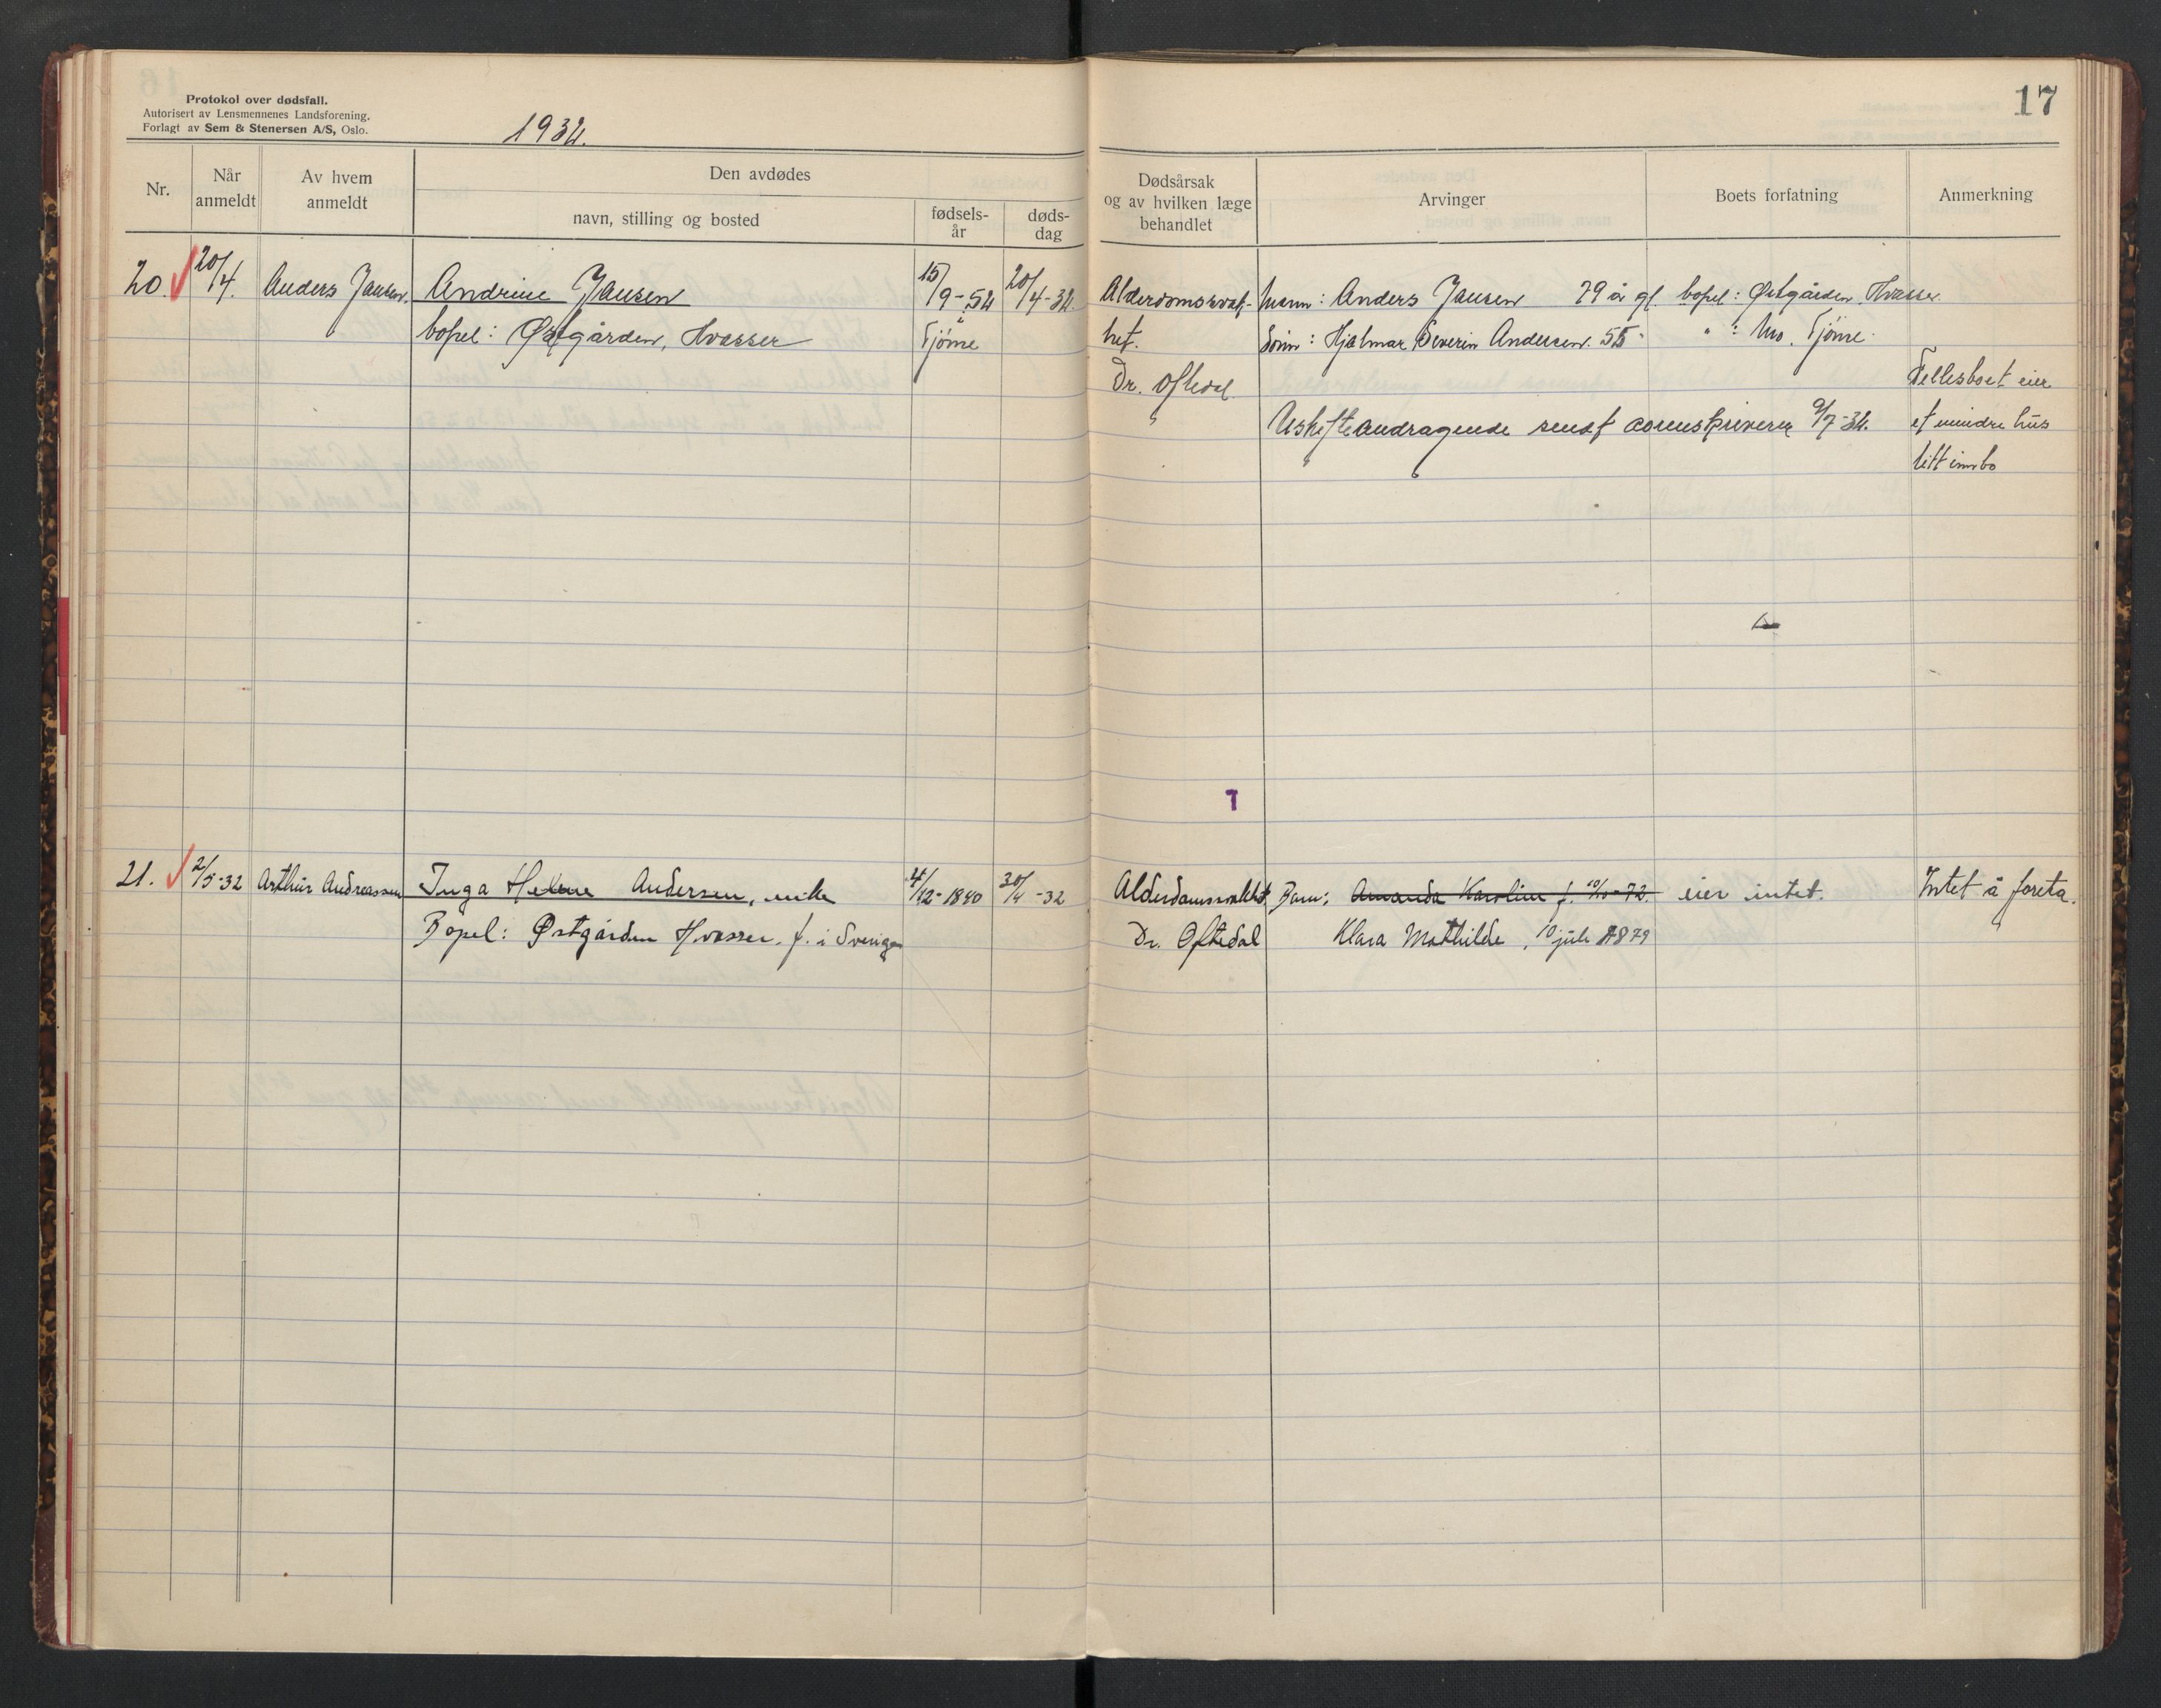 Protokol over dødsfall.
Autorisert av Lensmennenes Landsforening.
Forlagt av Sem & Stenersen A/S, Oslo.
1932.
17
Nr.
Når anmeldt
Av hvem anmeldt
Den avdødes
navn, stilling og bosted
fødsels-år
døds-dag
Dødsårsak og av hvilken læge behandlet
Arvinger
Boets forfatning
Anmerkning
20. 20/4. Anders Jansen. Andrine Jansen 15/9-52 20/4-32. Alderdomssvak- Mann: Anders Jansen 79 år gl. bopel: Østgården Hvasser.
bopel: Østgården, Hvasser Tjøme het. Sønn: Hjalmar Severin Andersen. 55 " : Mo. Tjøme.
Dr. Oftedal. Fellesboet eier
Uskifteandragende sendt sorenskriveren 9/7-32. et mindre hus
litt innbo
21. 2/5-32 Arthur Andreassen Inga Helene Andersen, enke 4/12-1840 30/4-32 Alderdomssvakhet Barn: Amanda Karoline f. 10/10-72. eier intet. Intet å foreta.
Bopel: Østgården Hvasser. f. i Sverige Dr. Oftedal Klara Mathilde, 10 juli 1879